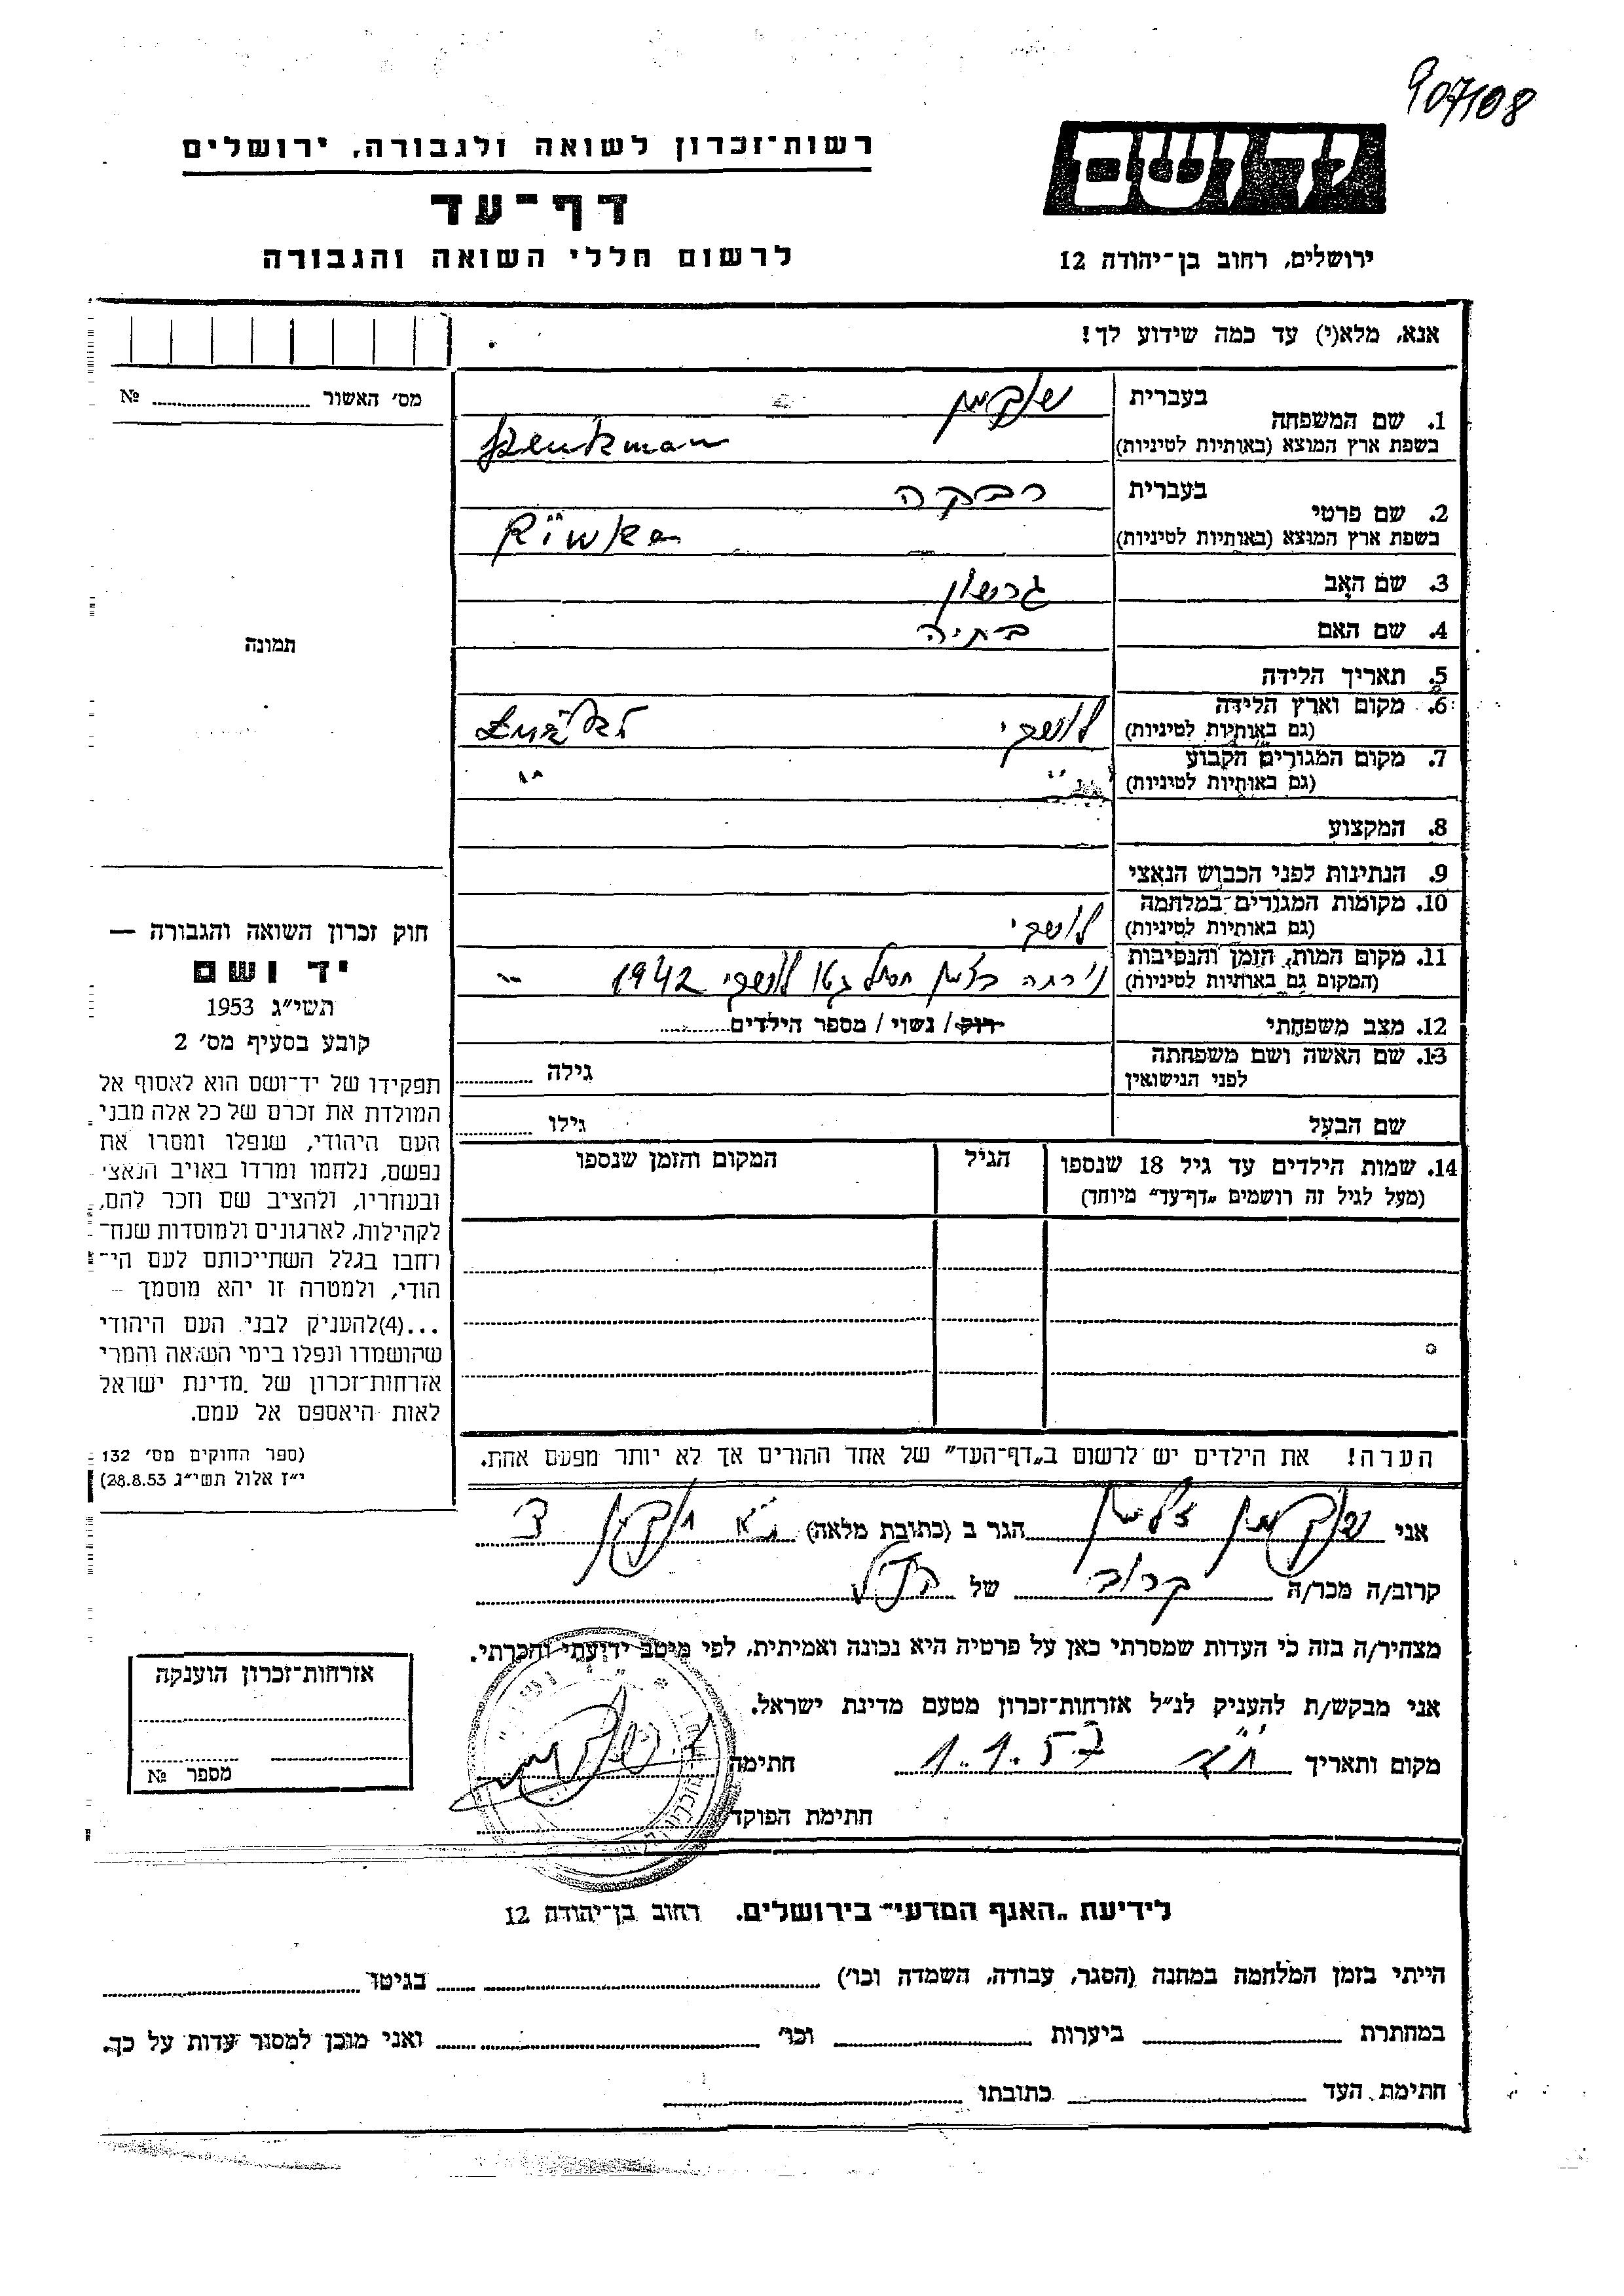 907108
רשות־זכרון לשואה ולגבורה, ירושלים
ידושם
דף־עד
לרשום חללי השואה והגבורה
ירושלים, רחוב בן־יהודה 12
אנא, מלא(י) עד כמה שידוע לך!
מס׳ האשור ........ №
תמונה
1. שם המשפחה
בעברית
בשפת ארץ המוצא (באותיות לטיניות)
2. שם פרטי
בעברית רבקה
בשפת ארץ המוצא (באותיות לטיניות)
3. שם האב גרשון
4. שם האם בתיה
5. תאריך הלידה
6. מקום וארץ הלידה
(גם באותיות לטיניות)
7. מקום המגורים הקבוע " "
(גם באותיות לטיניות)
8. המקצוע
9. הנתינות לפני הכבוש הנאצי
10. מקומות המגורים במלחמה
(גם באותיות לטיניות)
11. מקום המות, הזמן והנסיבות
(המקום גם באותיות לטיניות) חסול גטו 1942
12. מצב משפחתי רוק / נשוי / מספר הילדים........
13. שם האשה ושם משפחתה
לפני הנישואין
גילה ........
שם הבעל
גילו ........
14. שמות הילדים עד גיל 18 שנספו
(מעל לגיל זה רושמים „דף־עד״ מיוחד)
הגיל
המקום והזמן שנספו
הערה! את הילדים יש לרשום ב„דף־העד״ של אחד ההורים אך לא יותר מפעם אחת.
חוק זכרון השואה והגבורה —
יד ושם
תשי״ג 1953
קובע בסעיף מס׳ 2
תפקידו של יד־ושם הוא לאסוף אל
המולדת את זכרם של כל אלה מבני
העם היהודי, שנפלו ומסרו את
נפשם, נלחמו ומרדו באויב הנאצי
ובעוזריו, ולהציב שם וזכר להם,
לקהילות, לארגונים ולמוסדות שנח־
רחבו בגלל השתייכותם לעם הי־
הודי, ולמטרה זו יהא מוסמך –
...(4)להעניק לבני העם היהודי
שהושמדו ונפלו בימי השואה והמרי
אזרחות־זכרון של מדינת ישראל
לאות היאספם אל עמם.
(ספר החוקים מס׳ 132
י״ז אלול תשי״ג 28.8.53)
אני ........ הגר ב (כתובת מלאה) ........
קרוב/ה מכר/ה קרוב של ........
מצהיר/ה בזה כי העדות שמסרתי כאן על פרטיה היא נכונה ואמיתית, לפי מיטב ידיעתי והכרתי.
אני מבקש/ת להעניק לנ״ל אזרחות־זכרון מטעם מדינת ישראל.
מקום ותאריך 1.1.57 חתימה
חתימת הפוקד
אזרחות־זכרון הוענקה
מספר №
לידיעת „האגף המדעי״ בירושלים. רחוב בן־יהודה 12
הייתי בזמן המלחמה במחנה (הסגר, עבודה, השמדה וכו׳) ........ בגיטו ........
במחתרת ........ ביערות ........ וכו׳ ........ ואני מוכן למסור עדות על כך.
חתימת העד ........ כתובתו ........